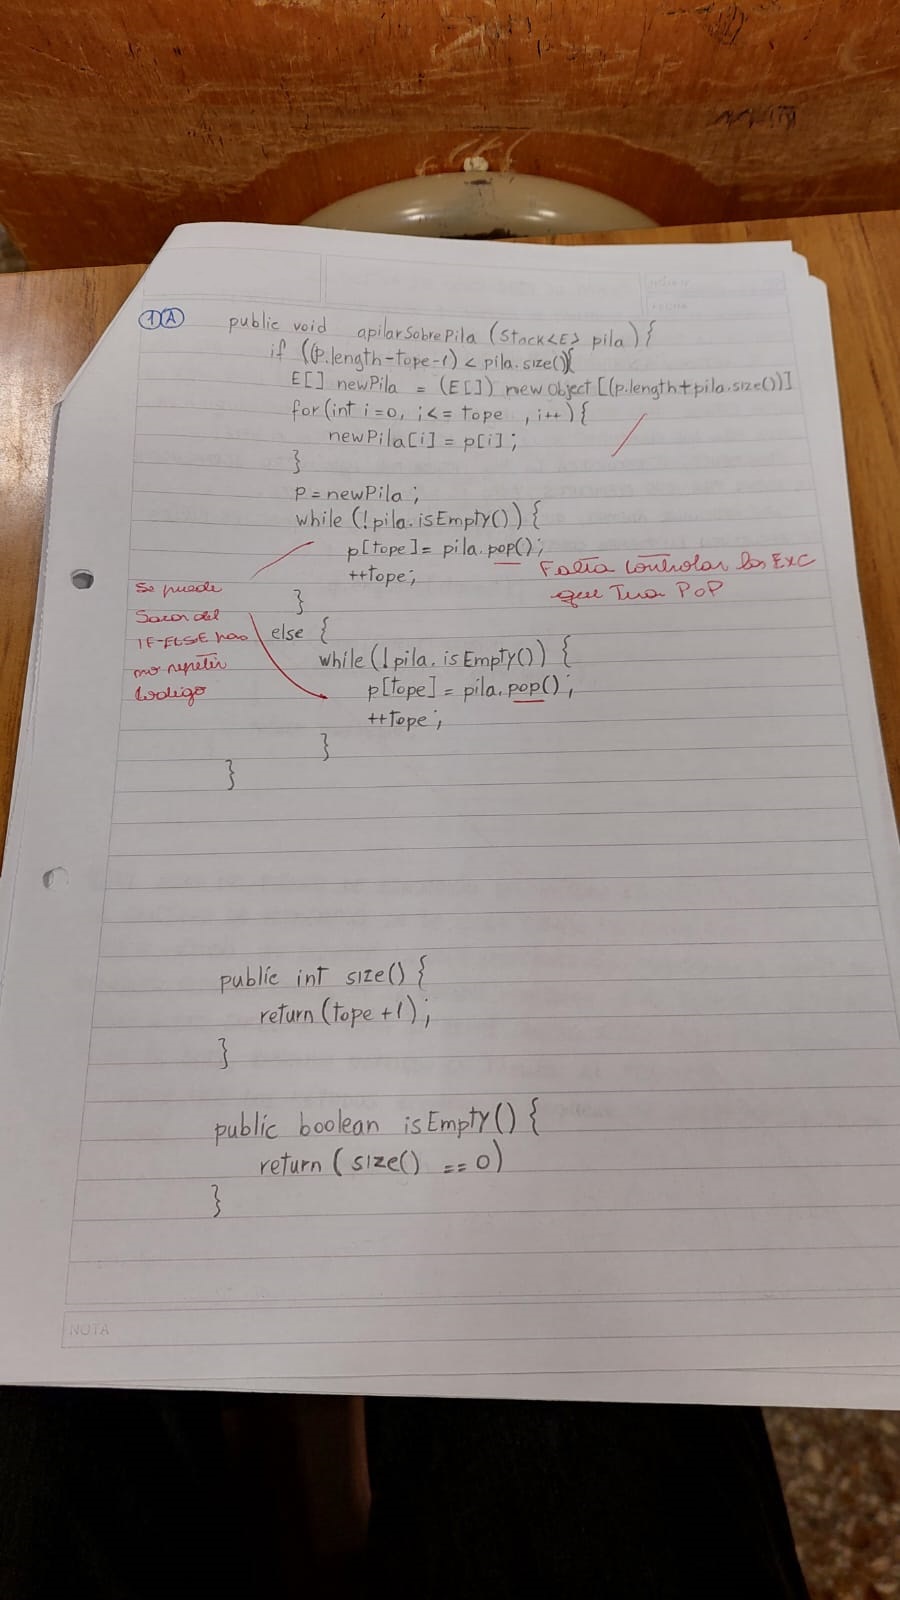 1 A public void apilarSobrePila (Stack<E> pila) {
if ((p.length-tope-1) < pila.size(){
E[] newPila = (E[]) new Object [(p.length+pila.size())]
for(int i=0, i<= tope , i++){
newPila[i] = p[i];
}
P = newPila;
while (!pila.isEmpty()) {
p[tope]= pila.pop();
++tope;
}
Falta controlar las EXC
que Tira POP
Se puede
Sacar del
IF-ELSE para
no repetir
Codigo
else {
while (!pila.isEmpty()) {
p[tope] = pila.pop();
++tope;
}
}
public int size() {
return (tope +1);
}
public boolean isEmpty() {
return ( size() == 0)
}
NOTA